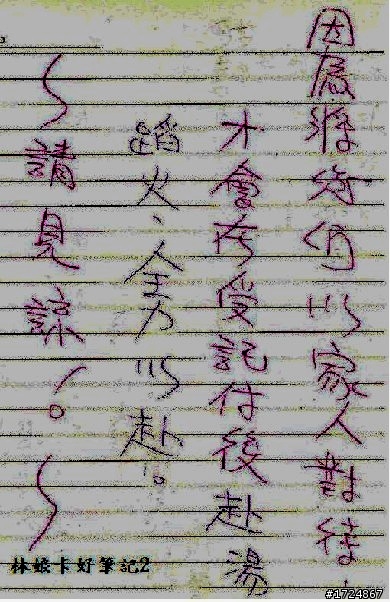 因將们以家人對待，
才會受記付後赴湯
蹈火、全力以赴。
～請見諒！。～
林娘卡好筆記2
#1724867